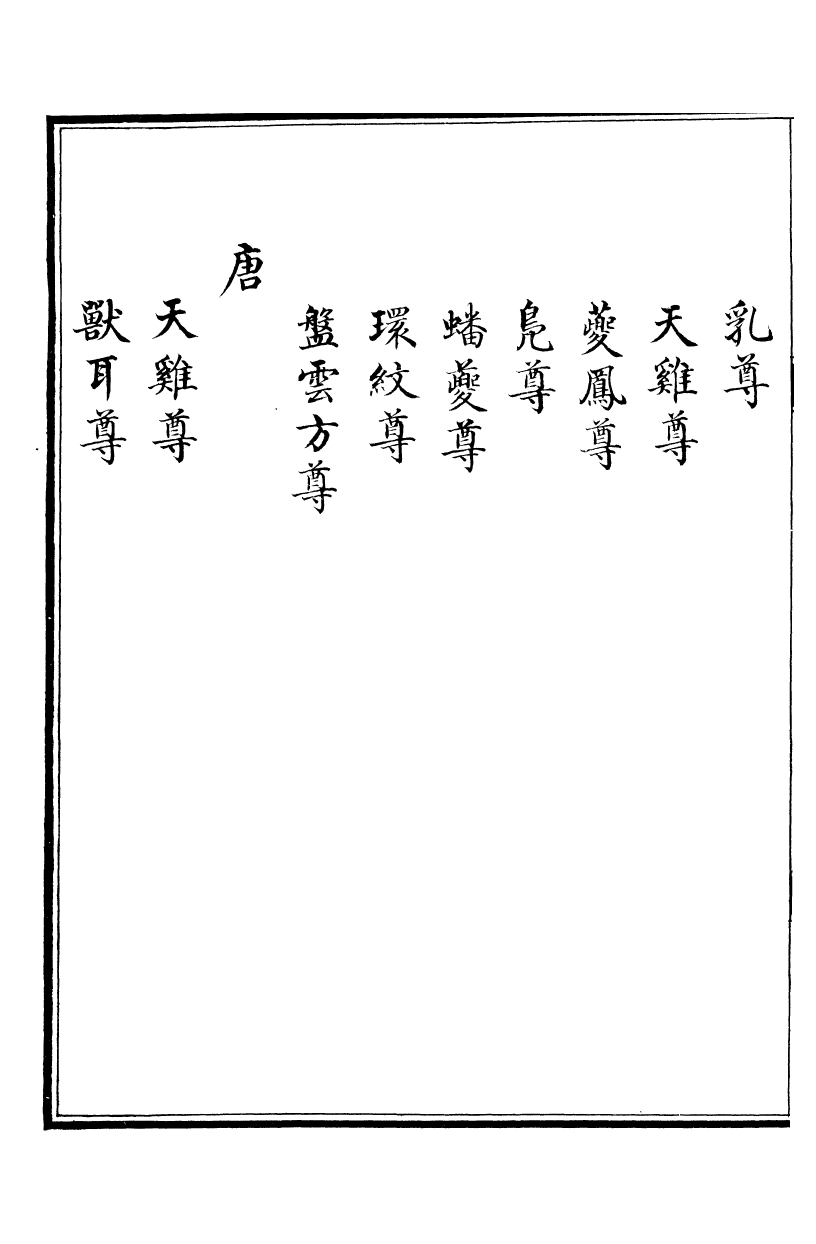 乳尊
天雞尊
夔鳳尊
鳧尊
蟠夔尊
環紋尊
盤雲方尊
唐
天雞尊
獸耳尊